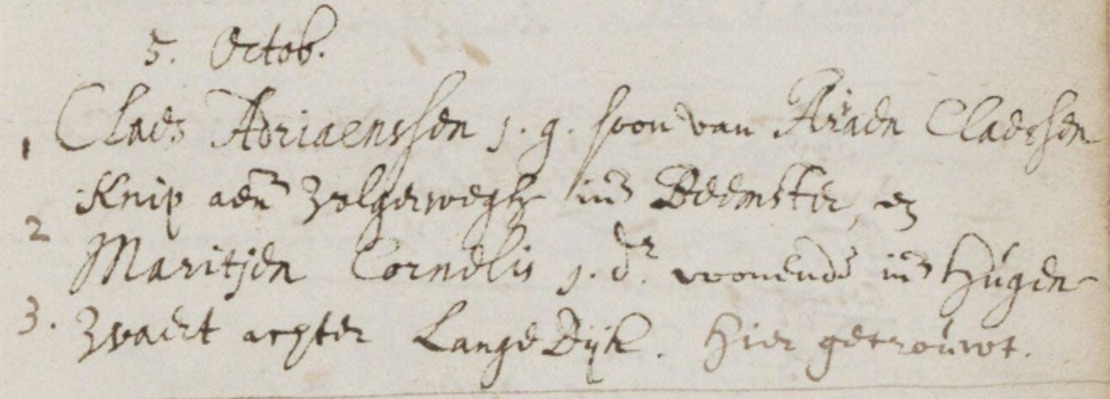 5. Octob.
1 Claes Adriaenssen j. g. soon van Ariaen Claessen
Knip aen Volgerwegh in Beemster, en
2 Maritjen Cornelis j. dr. woonende in Hugen-
3. Waert achter Lange Dijk. Hier getrouwt.